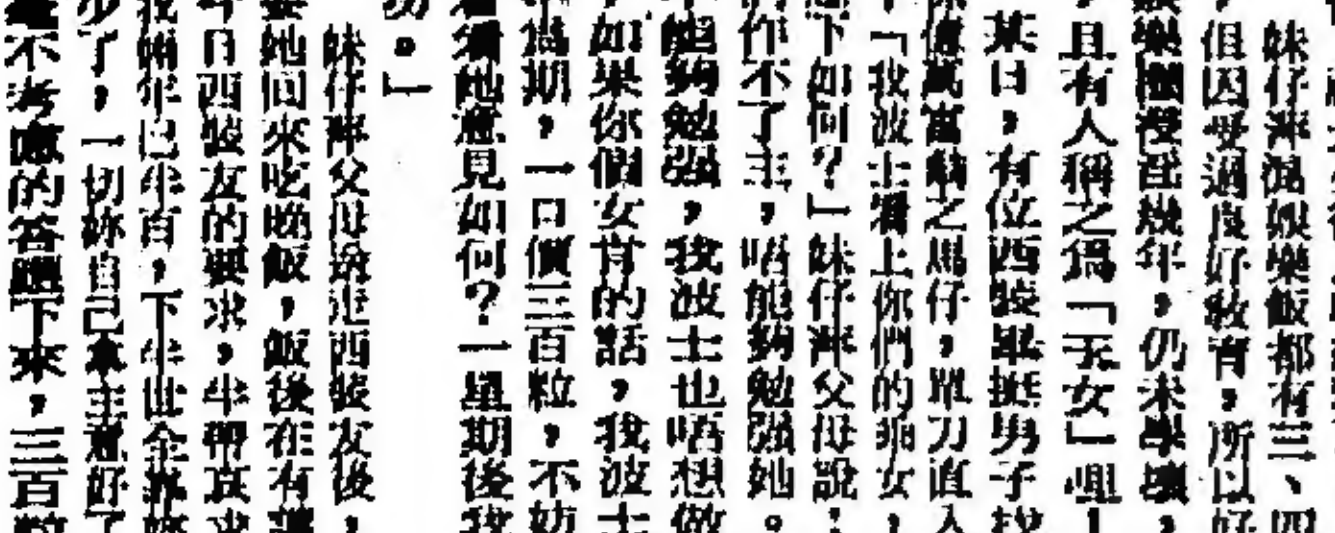 妹仔潭混娛樂飯都有三、四
但因受過良好敎育,所以好
娛樂圈浸淫幾年,仍未學壞,
,且有人稱之爲「玉女」哩!
某日,有位西裝畢挺男子找
億萬富翁之馬仔,單刀直入
「我波士看上你們的乖女,
下如何?」妹仔潭父母說:
作不了主,唔能夠勉强她。
能夠勉强,我波士也唔想做
如果你個女肯的話,我波士
爲期,一口價三百粒,不妨
看她意見如何?一星期後我
。」
妹仔潭父母送走西裝友後,
她回來吃晚飯,飯後在有
日西裝友的要求,坐
年已半百,下半世全
少了,一切妳自己拿主意好了
不考慮的答應下來,三百粒